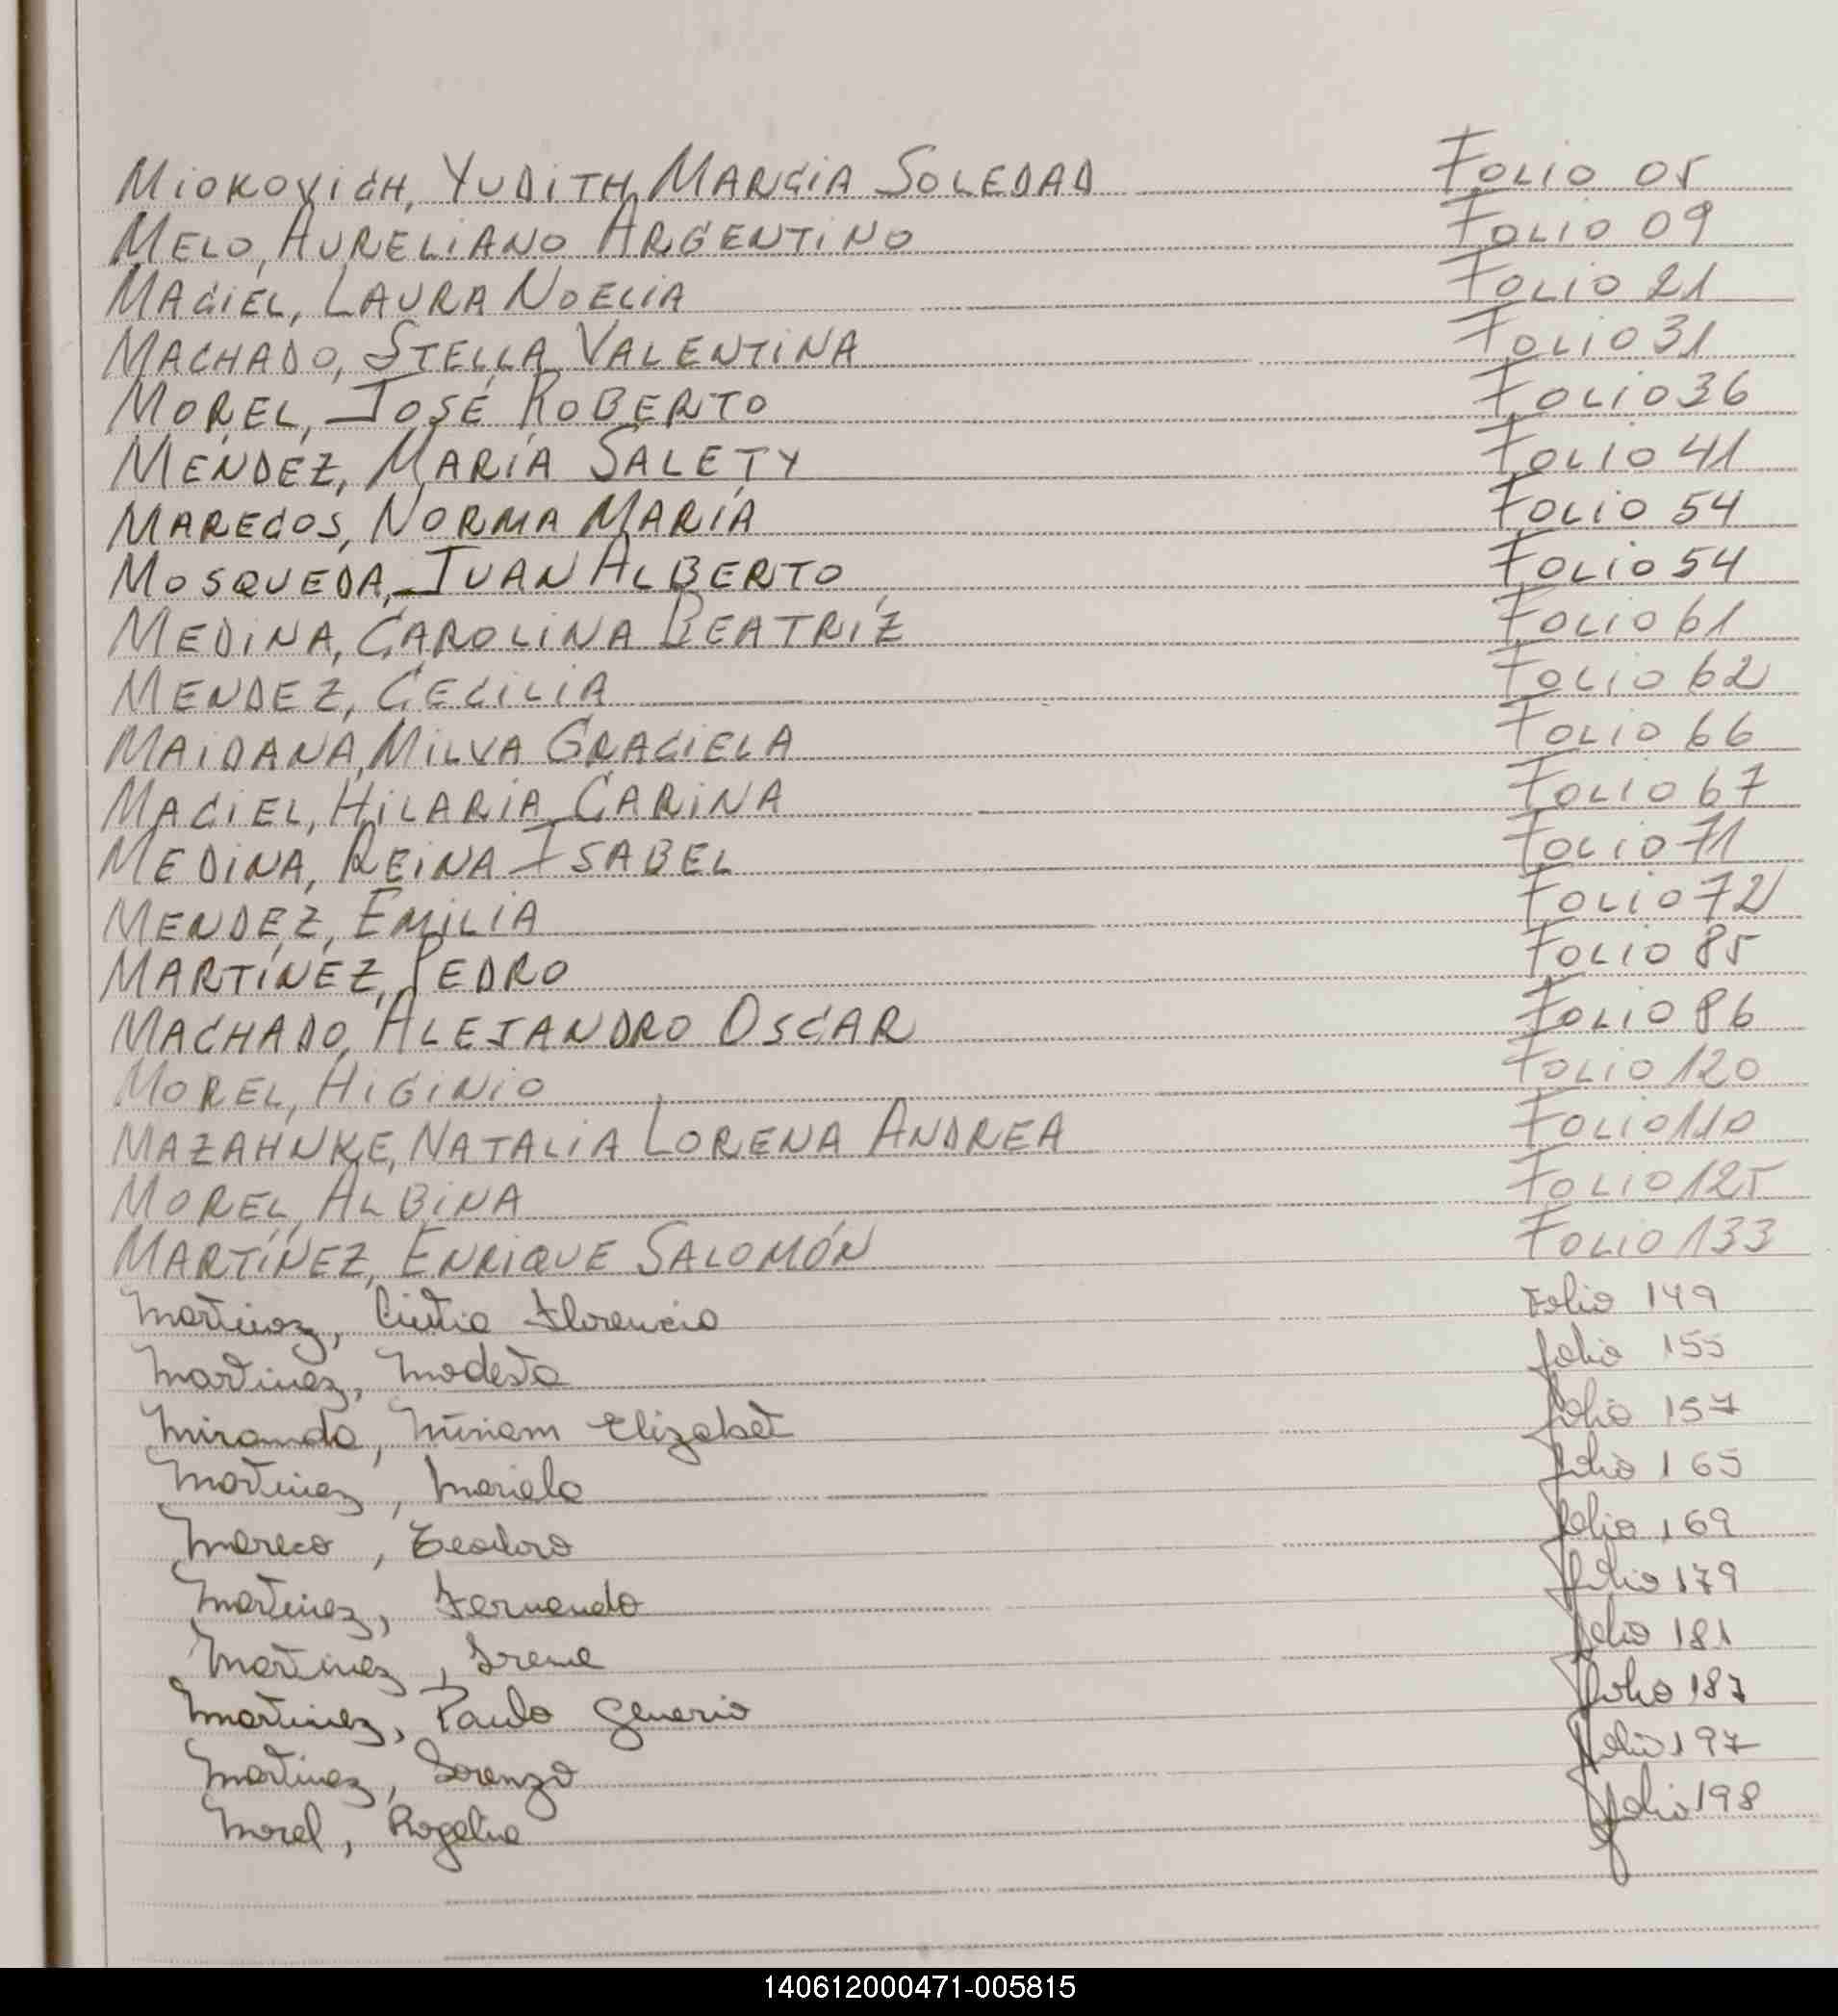 MIOKOVICH, YUDITH MARCIA SOLEDAD FOLIO 05
MELO, AURELIANO ARGENTINO FOLIO 09
MACIEL, LAURA NOELIA FOLIO 21
MACHADO, STELLA VALENTINA FOLIO 31
MOREL, JOSÉ ROBERTO FOLIO 36
MENDEZ, MARÍA SALETY FOLIO 41
MARECOS, NORMA MARÍA FOLIO 54
MOSQUEDA, JUAN ALBERTO FOLIO 54
MEDINA, CAROLINA BEATRÍZ FOLIO 61
MENDEZ, CECILIA FOLIO 62
MAIDANA, MILVA GRACIELA FOLIO 66
MACIEL, HILARIA CARINA FOLIO 67
MEDINA, REINA ISABEL FOLIO 71
MENDEZ, EMILIA FOLIO 72
MARTÍNEZ, PEDRO FOLIO 85
MACHADO, ALEJANDRO OSCAR FOLIO 86
MOREL, HIGINIO FOLIO 120
MAZAHNKE, NATALIA LORENA ANDREA FOLIO 110
MOREL, ALBINA FOLIO 125
MARTÍNEZ, ENRIQUE SALOMÓN FOLIO 133
Martinez, Cintia Florencia Folio 149
Martinez, Modesta folio 155
Miranda, Miriam Elizabet folio 157
Martinez, Mariela folio 165
Mareco, Teodoro folio 169
Martinez, Fernando folio 179
Martinez, Irene folio 181
Martinez, Paulo Genario folio 187
Martinez, Lorenzo folio 197
Morel, Rogelia folio 198
140612000471-005815